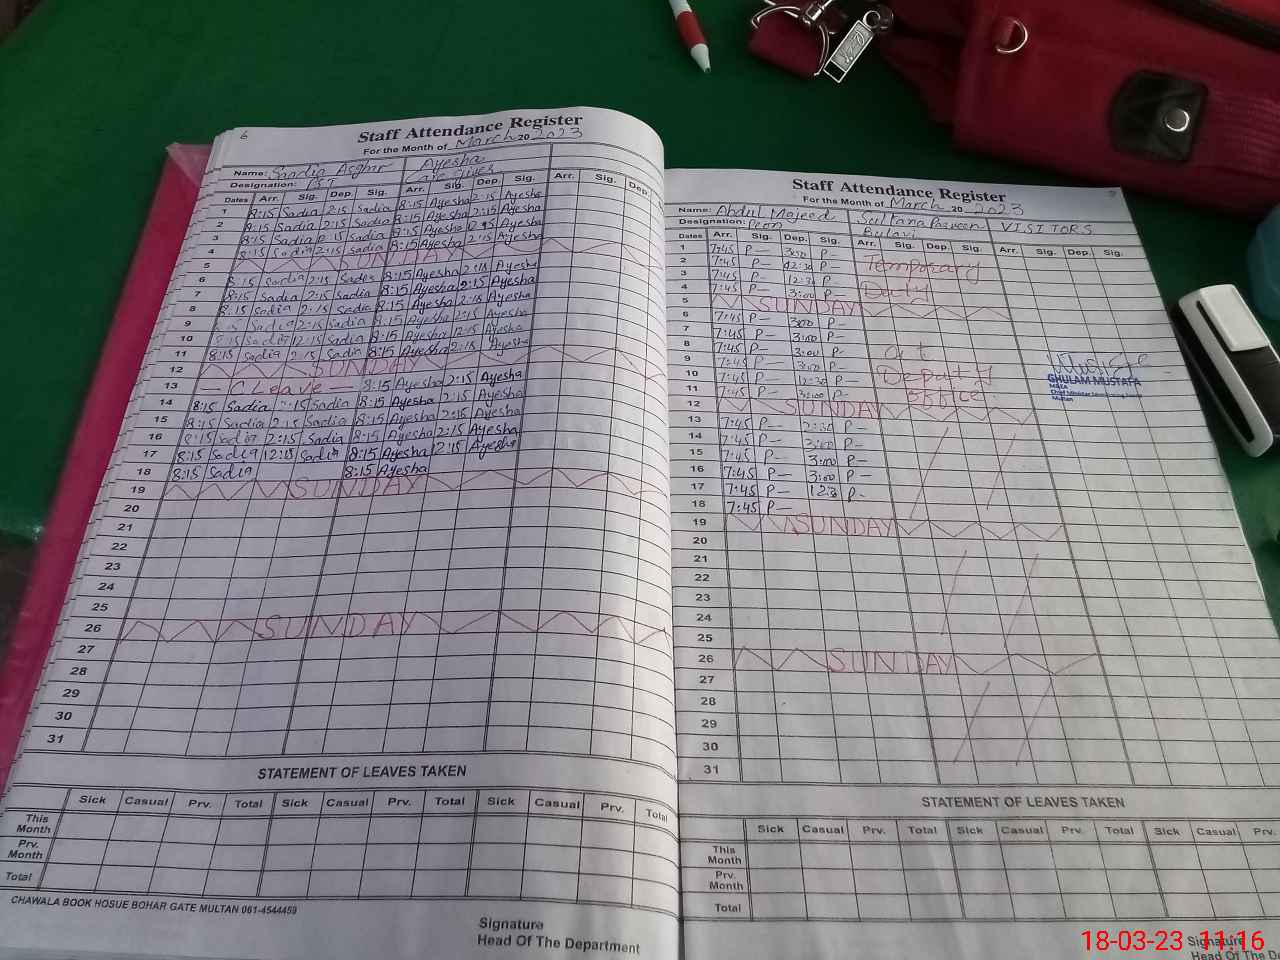 6
Staff Attendance Register
For the Month of March 20 2023
Name: Saadia Asghar Ayesha
Designation: PST Care Giver
Dates Arr. Sig. Dep. Sig. Arr. Sig. Dep. Sig. Arr. Sig. Dep.
1 8:15 Sadia 2:15 Sadia 8:15 Ayesha 2:15 Ayesha
2 8:15 Sadia 2:15 Sadia 8:15 Ayesha 2:15 Ayesha
3 8:15 Sadia 12:15 Sadia 8:15 Ayesha 12:15 Ayesha
4 8:15 Sadia 2:15 Sadia 8:15 Ayesha 2:15 Ayesha
5 SUNDAY
6 8:15 Sadia 2:15 Sadia 8:15 Ayesha 2:15 Ayesha
7 8:15 Sadia 2:15 Sadia 8:15 Ayesha 2:15 Ayesha
8 8:15 Sadia 2:15 Sadia 8:15 Ayesha 2:15 Ayesha
9 8:15 Sadia 2:15 Sadia 8:15 Ayesha 2:15 Ayesha
10 8:15 Sadia 12:15 Sadia 8:15 Ayesha 12:15 Ayesha
11 8:15 Sadia 2:15 Sadia 8:15 Ayesha 2:15 Ayesha
12 SUNDAY
13 — C Leave — 8:15 Ayesha 2:15 Ayesha
14 8:15 Sadia 2:15 Sadia 8:15 Ayesha 2:15 Ayesha
15 8:15 Sadia 2:15 Sadia 8:15 Ayesha 2:15 Ayesha
16 8:15 Sadia 2:15 Sadia 8:15 Ayesha 2:15 Ayesha
17 8:15 Sadia 12:15 Sadia 8:15 Ayesha 2:15 Ayesha
18 8:15 Sadia 8:15 Ayesha
19 SUNDAY
20
21
22
23
24
25
26 SUNDAY
27
28
29
30
31
STATEMENT OF LEAVES TAKEN
Sick Casual Prv. Total Sick Casual Prv. Total Sick Casual Prv. Total
This Month
Prv. Month
Total
CHAWALA BOOK HOSUE BOHAR GATE MULTAN 061-4544459
Signature
Head Of The Department
7
Staff Attendance Register
For the Month of March 20 2023
Name: Abdul Majeed Sultana Parveen VISITORS
Designation: Peon
Dates Arr. Sig. Dep. Sig. Arr. Sig. Dep. Sig. Arr. Sig. Dep. Sig.
1 7:45 P— 3:00 P— Temporary
2 7:45 P— 12:30 P—
3 7:45 P— 12:30 P— Duty
4 7:45 P— 3:00 P—
5 SUNDAY
6 7:45 P— 3:00 P—
7 7:45 P— 3:00 P— at
8 7:45 P— 3:00 P—
9 7:45 P— 3:00 P— Deputy
10 7:45 P— 12:30 P— office
11 7:45 P— 3:00 P—
GHULAM MUSTAFA
MEA
Multan
12 SUNDAY
13 7:45 P— 2:30 P—
14 7:45 P— 3:00 P—
15 7:45 P— 3:00 P—
16 7:45 P— 3:00 P—
17 7:45 P— 12:30 P—
18 7:45 P—
19 SUNDAY
20
21
22
23
24
25
26 SUNDAY
27
28
29
30
31
STATEMENT OF LEAVES TAKEN
Sick Casual Prv. Total Sick Casual Prv. Total Sick Casual Prv.
This Month
Prv. Month
Total
Signature
Head Of The D
18-03-23 11:16